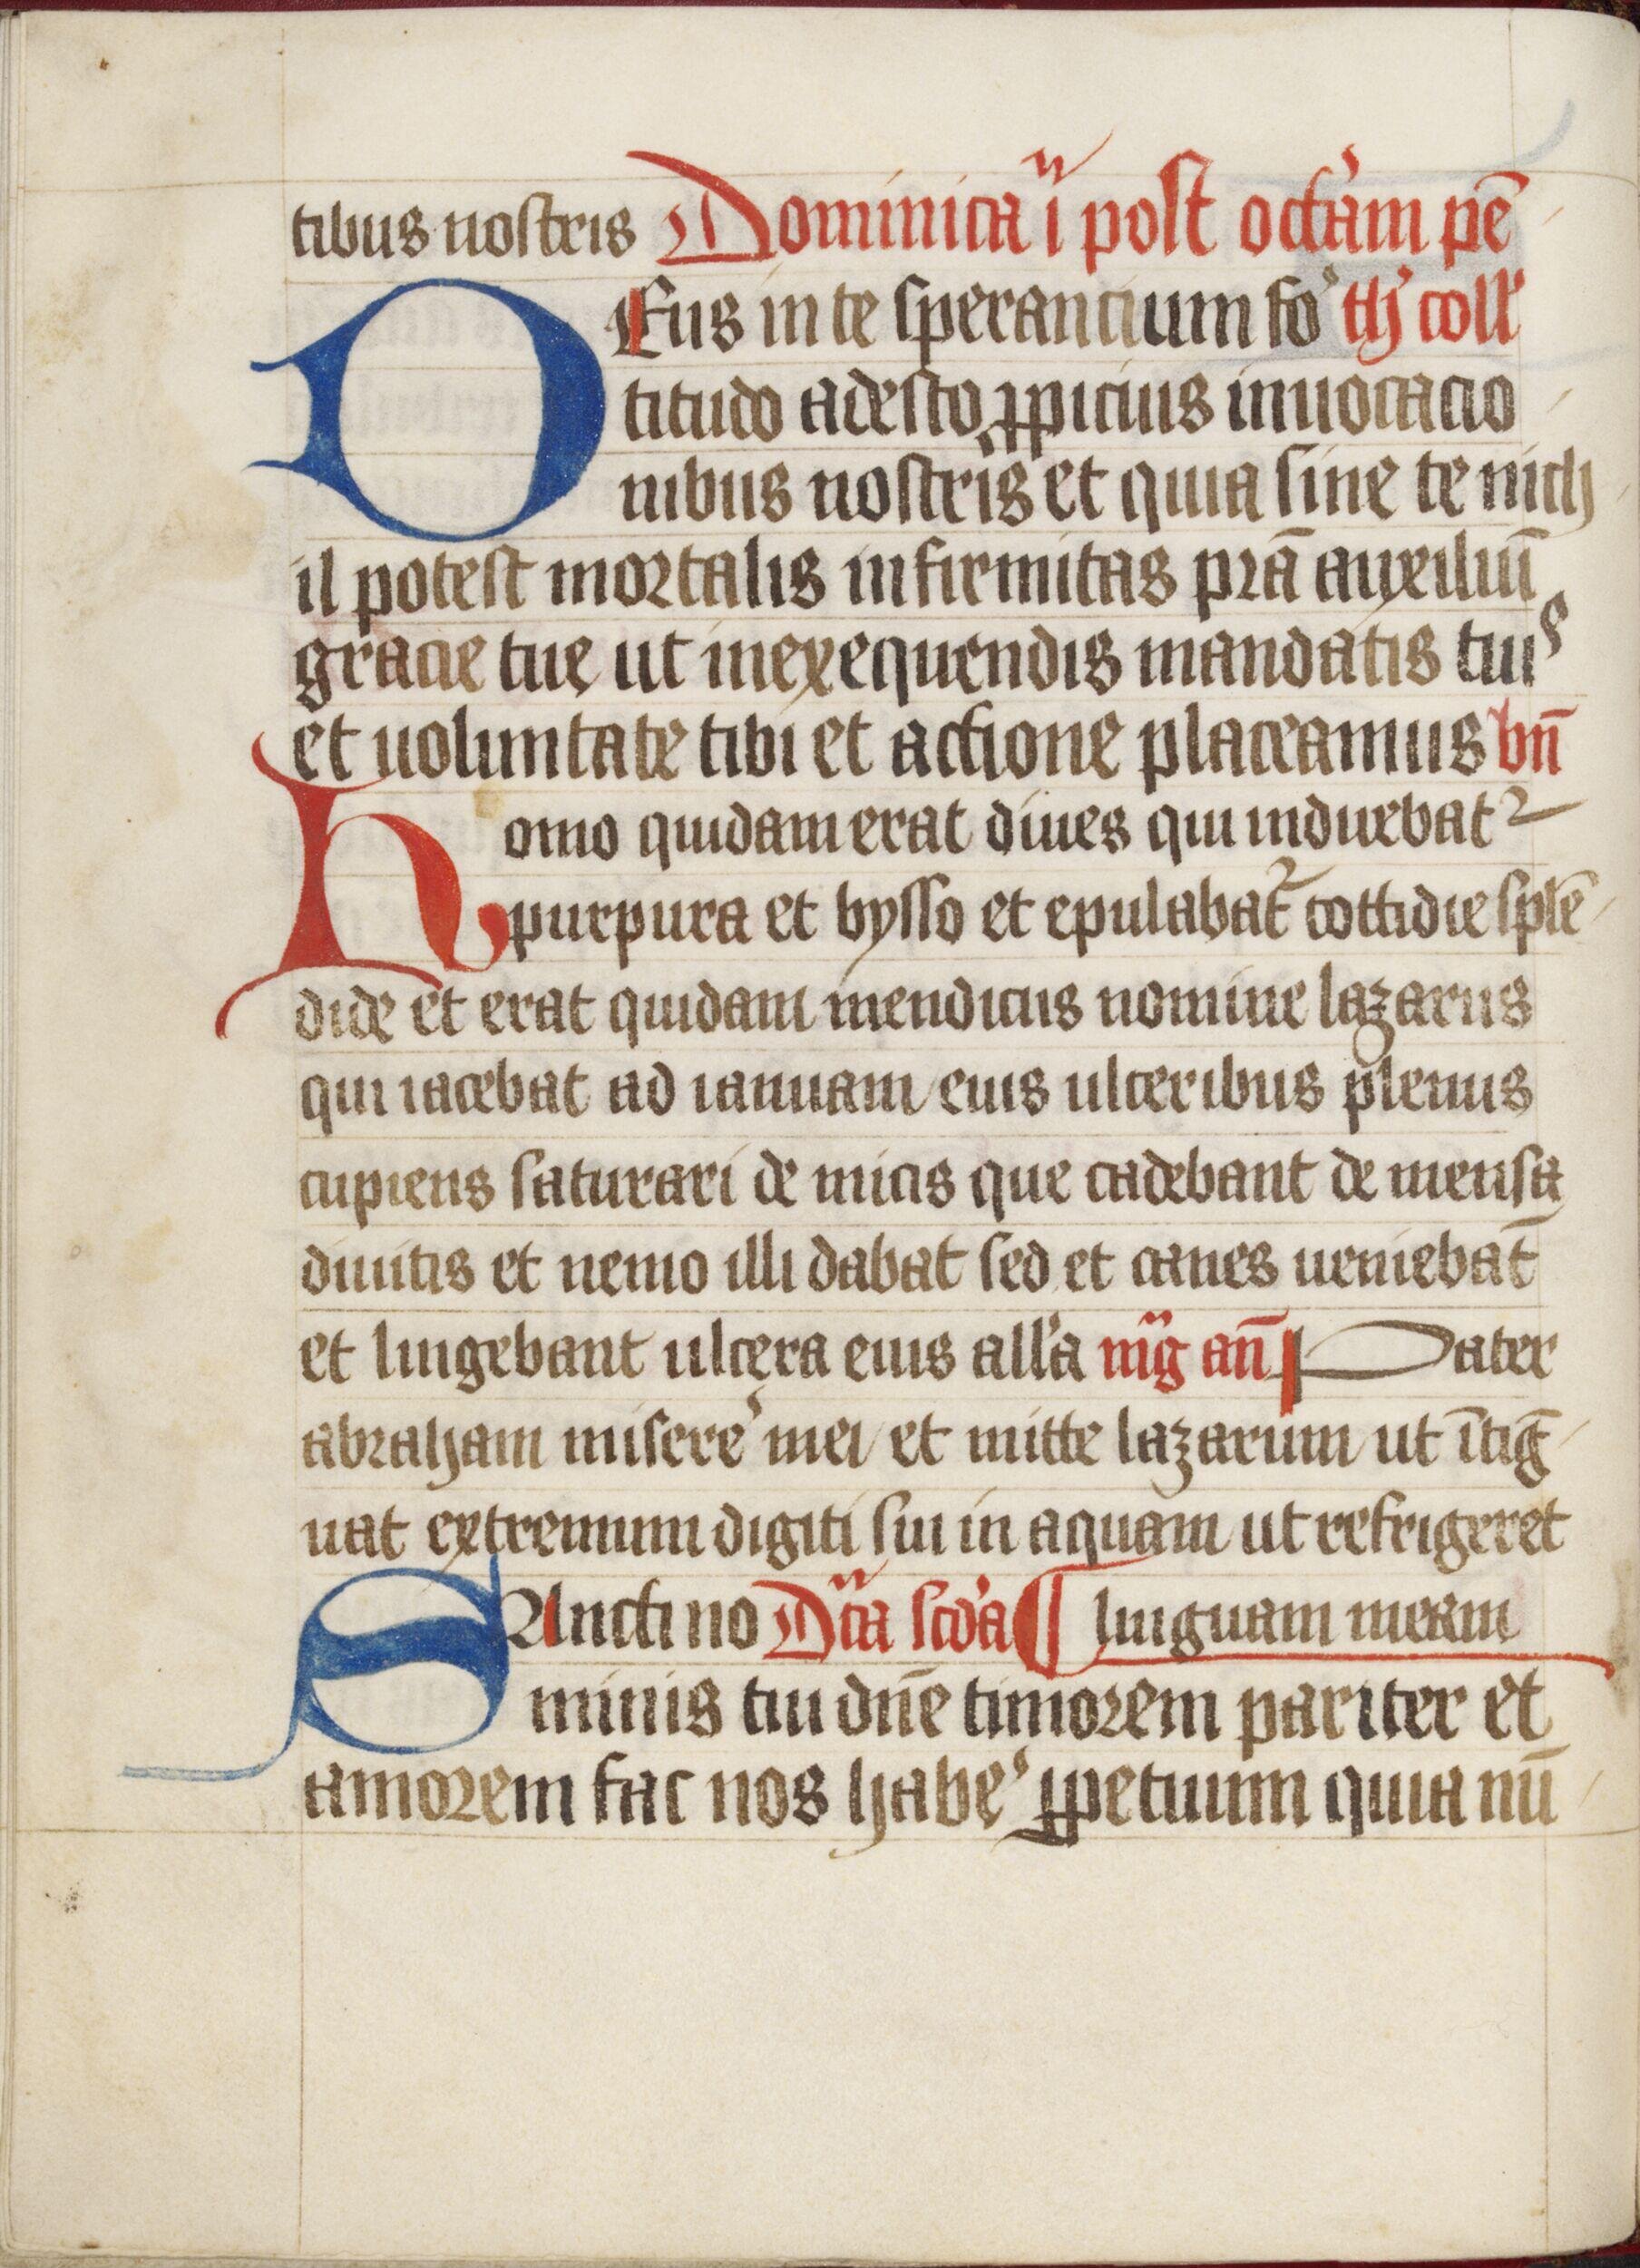 tibus nostris Dominica i post octa'm pē
DEus in te sperancium fo' th' coll'
titudo adesto ꝓpicius inuocacio
nibus nostris et quia sine te nich
il potest mortalis infirmitas prā auxiliū
gracie tue ut in exequendis mandatis tuis
et uoluntate tibi et actione placeamus bn̄
Homo quidam erat diues qui induebat᷑
purpura et bysso et epulabat᷑ cottidie splē
dide et erat quidam mendicus nomine lazarus
qui iacebat ad ianuam eius ulceribus plenus
cupiens saturari de micis que cadebant de mensa
diuitis et nemo illi dabat sed et canes ueniebāt
et lingebant ulcera eius all'a mg̃ an̄ Pater
abraham misere' mei et mitte lazarum ut ītig̃
uat extremum digiti sui in aquam ut refrigeret
SAncti no Dn̄ca scd'a ¶ linguam meam
minis tui dn̄e timorem pariter et
amorem fac nos habe' ꝑpetuum quia nū